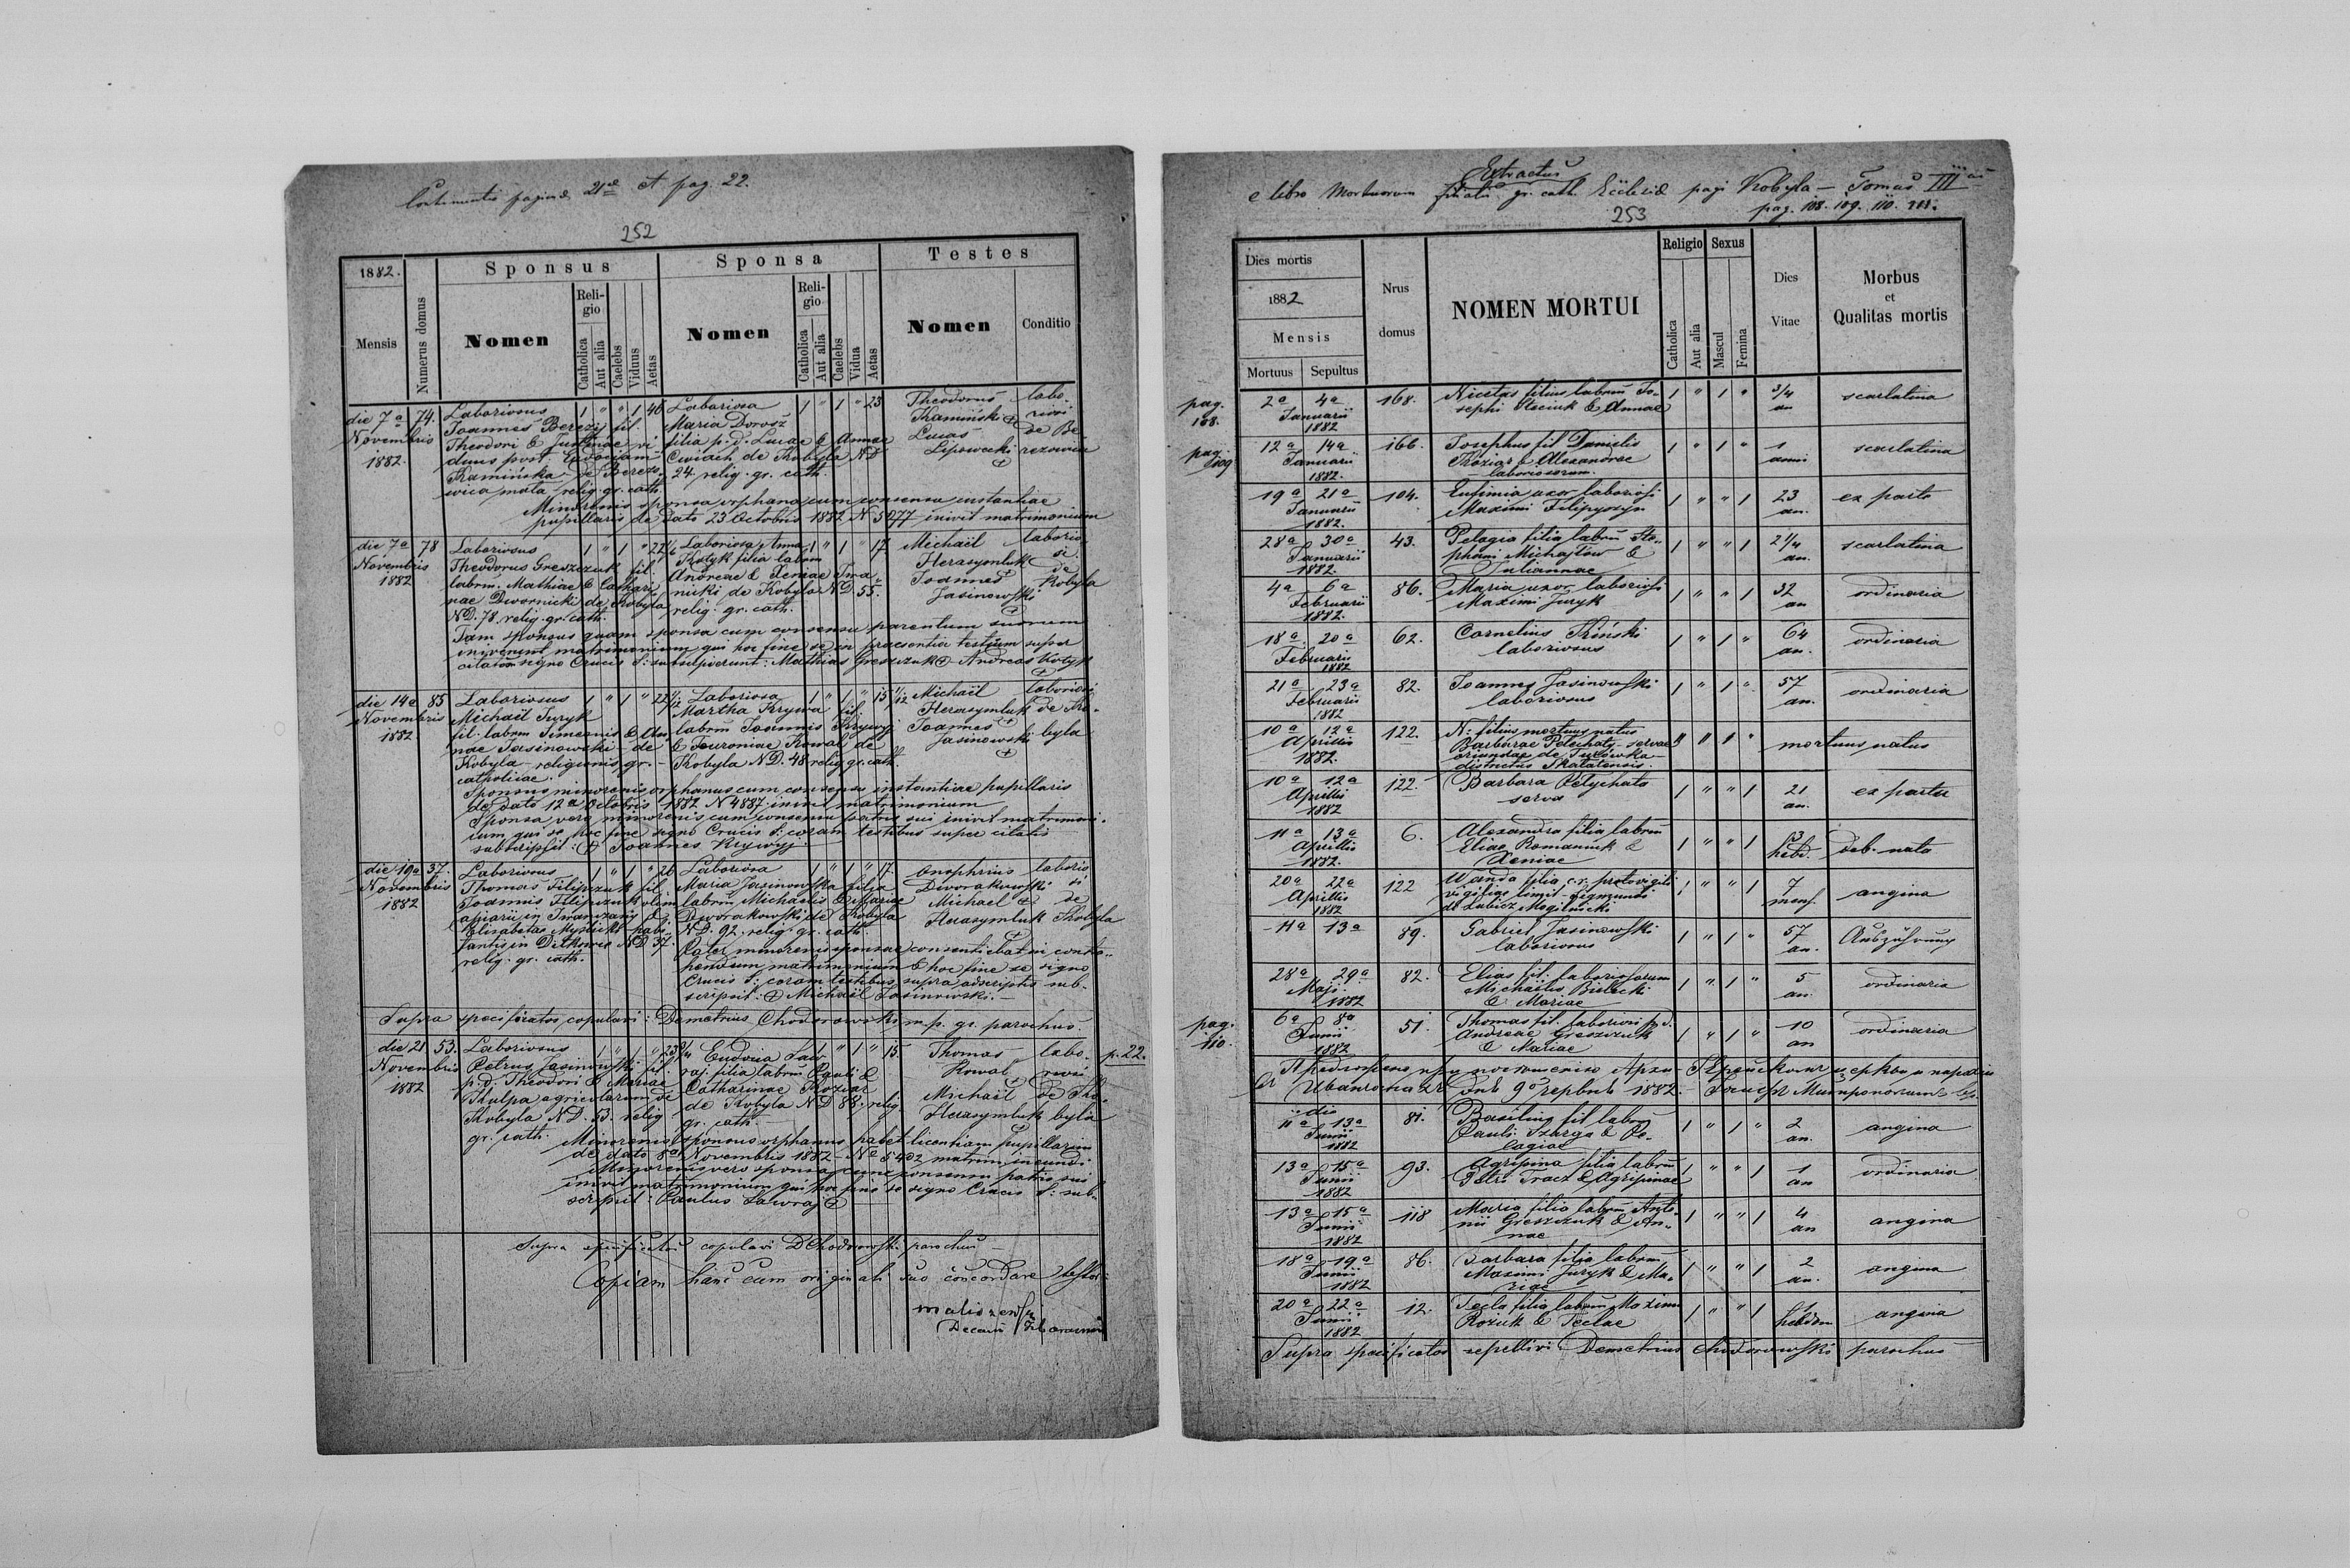 Continuatio paginae 21ae et pag. 22.
252
1882.
Sponsus
Sponsa
Testes
Mensis
Numerus domus
Nomen
Religio
Catholica
Aut alia
Caelebs
Viduus
Aetas
Nomen
Religio
Catholica
Aut alia
Caelebs
Vidua
Aetas
Nomen
Conditio
die 7a 74. Laboriosus 1 " " 1 46 Laboriosa 1 " 1 " 23 Theodorus labo-
Novembris Joannes Berezij fil. Maria Dorosz Kamiński riosi
1882. Theodori & Justinae vi- filia p. d. Lucae & Annae Lucas de Be-
duus post Eudociam Cwiach de Kobyla ND Lipowecki rezowica
Kamińska de Berezo- 24 relig. gr. cath.
wica mała relig. gr. cath.
Minorenis sponsa orphana cum consensu instantiae
pupillaris de dato 23 Octobris 1882 N 5077 inivit matrimonium
die 7a 78 Laboriosus 1 " 1 " 22 Laboriosa Anna 1 " 1 " 17 Michaël laborio-
Novembris Theodorus Greszczuk fil. Kotyk filia labrum Herasymluk si
1882 labrum. Mathiae & Cathari- Andreae & Xeniae Iwa- Joannes de
nae Dwornicki de Kobyla nicki de Kobyla ND. 55. Jasinowski Kobyla
ND. 78 relig. gr. cath. relig. gr. cath.
Tam sponsus quam sponsa cum consensu parentum suorum
inivenunt matrimonium qui hoc fine se in praesentia testium super
citatorum signo Crucis S: subscripserunt: Mathias Greszczuk Andreas Kotyk
die 14a 85 Laboriosus 1 " 1 " 22 Laboriosa 1 " 1 " 15 Michaël laboriosi
Novembris Michaël Juryk Martha Krywa fil. Herasymluk de Ko-
1882 fil. labrum Simeonis & An- labrum Joannis Krywyj Joannes byla
nae Jasinowski - de & Fevroniae Kowal de Jasinowski
Kobyla religionis gr.- Kobyla ND. 48 relig gr. cath.
catholicae.
Sponsus minorenis orphanus cum consensu instantiae pupillaris
de dato 12a Octobris 1882 N 4887 inivit matrimonium
Sponsa vero minorenis cum consensu patris sui inivit matrimoni-
ium qui se hoc fine signo Crucis S: coram testibus super citatis
subscripsit: Joannes Krywyj.
die 19a 37. Laboriosus 1 " 1 " 26 Laboriosa 1 " 1 " 17. Onophrius laborio-
Novembris Thomas Filipczuk fil. Maria Jasinowska filia Dworakowski si
1882 Joannis Filipczuk olim labrum Michaelis & Mariae Michael de
apiarii in Iwanczany & Dworakowski de Kobyla Herasymluk Kobyla
Elisabetae Myslicki habi- ND. 92. relig. gr. cath.
tantis in Ditkowce ND 37. Pater minorenis sponsae consentiebat in contra-
relig. gr. cath. hendum matrimonium & hoc fine se signo
Crucis S: coram testibus supra adscriptis sub-
scripsit: Michaël Jasinowski.
Supra specificatos copulavi: Demetrius Chodorowski m.p. gr. parochus.
die 21 53. Laboriosus 1 " 1 " 23 Eudocia Law- 1 " 1 " 15. Thomas labo- p. 22.
Novembris Petrus Jasinowski fil. raj. filia labrum Pauli & Kowal riosi
1882 p. d. Theodori & Mariae Catharinae Koziar Michaël de Ko-
Kulpa agricolarum de de Kobyla ND 88. relig. Herasymluk byla
Kobyla ND. 53. relig gr. cath.
gr. cath. Minorenis sponsus orphanus habet licentiam pupillarem
de dato 8a Novembris 1882 - No 5402 matrim. ineundi
Minorenis vero sponsa cum consensu patris sui
inivit matrimonium qui hoc fine se signo Crucis S: sub-
scripsit: Paulus Lawraj
Supra specificatos copulavi D Chodorowski parochus
Copiam hanc cum originali suo concordare testor
Decani
Extractus
e libro Mortuorum filialis gr. cath. Ecclesiae pagi Kobyla - Tomus III
pag. 108. 109. 110. 111.
253
Dies mortis
1882
Mensis
Mortuus
Sepultus
Nrus domus
NOMEN MORTUI
Religio
Catholica
Aut alia
Sexus
Mascul
Femina
Dies Vitae
Morbus et Qualitas mortis
pag. 108. 2a 4a Januarii 1882 168. Nicetas filius labrum Jo- 1 " 1 " 3/4 an scarlatina
sephi Staciuk & Annae
pag. 109 12a 14a Januarii 1882. 166. Josephus fil Danielis 1 " 1 " 1 anni scarlatina
Koziar & Alexandrae
laboriosorum.
19a 21a Januarii 1882. 104. Eufimia uxor laboriosi 1 " " 1 23 an. ex partu
Maximi Filipczyn
28a 30a Januarii 1882. 43. Pelagia filia labrum Ste- 1 " " 1 2 1/4 an. scarlatina
phani Michajłow &
Juliannae
4a 6a Februarii 1882. 86. Maria uxor laboriosi 1 " " 1 32 an ordinaria
Maximi Juryk
18a 20a Februarii 1882 62. Cornelius Kiński 1 " 1 " 64 an. ordinaria
laboriosus
21a 23a Februarii 1882 82. Joannes Jasinowski 1 " 1 " 57 an. ordinaria
laboriosus
10a 12a Aprillis 1882. 122. N: filius mortuus natus " " 1 " mortuus natus
Barbarae Petechaty - servae
oriundae de Tułówka
districtus Skałatensis.
10a 12a Aprillis 1882 122. Barbara Petychata 1 " " 1 21 an. ex partu
serva
11a 13a Aprillis 1882. 6. Alexandra filia labrum 1 " " 1 3 hebd. deb. nata
Eliae Romaniuk &
Xeniae
20a 22a Aprillis 1882 122 Wanda filia c.r. protovigili 1 " " 1 7 mens. angina
vigiliae limit - Sigmundi
de Lubicz Mogilnicki
11a 13a 89. Gabriel Jasinowski 1 " 1 " 57 an. Auszährung
laboriosus
28a 29a Maji 1882 82. Elias fil: laboriosorum 1 " 1 " 5 an. ordinaria
Michaelis Bielecki
& Mariae
pag. 110. 6a 8a Junii 1882 51. Thomas fil. laboriosi p. d. 1 " 1 " 10 an ordinaria
Andreae Greszczuk
& Mariae
дня 9 червня 1882
die 11a 13a Junii 1882 81. Basilius fil labrum 1 " 1 " 2 an. angina
Pauli Szarga & Pe-
lagiae
13a 15a Junii 1882 93. Agripina filia labrum 1 " " 1 1 an ordinaria
Petri Tracz & Agripinae
13a 15a Junii 1882 118 Maria filia labrum Anto- 1 " " 1 4 an angina
nii Greszczuk & An-
nae
18a 19a Junii 1882 86. Barbara filia labrum 1 " " 1 2 an. angina
Maximi Juryk & Ma-
riae
20a 22a Junii 1882 12. Tecla filia labrum Maximi 1 " " 1 1 hebdom angina
Roziuk & Teclae
Supra specificatos sepelivi Demetrius Chodorowski parochus